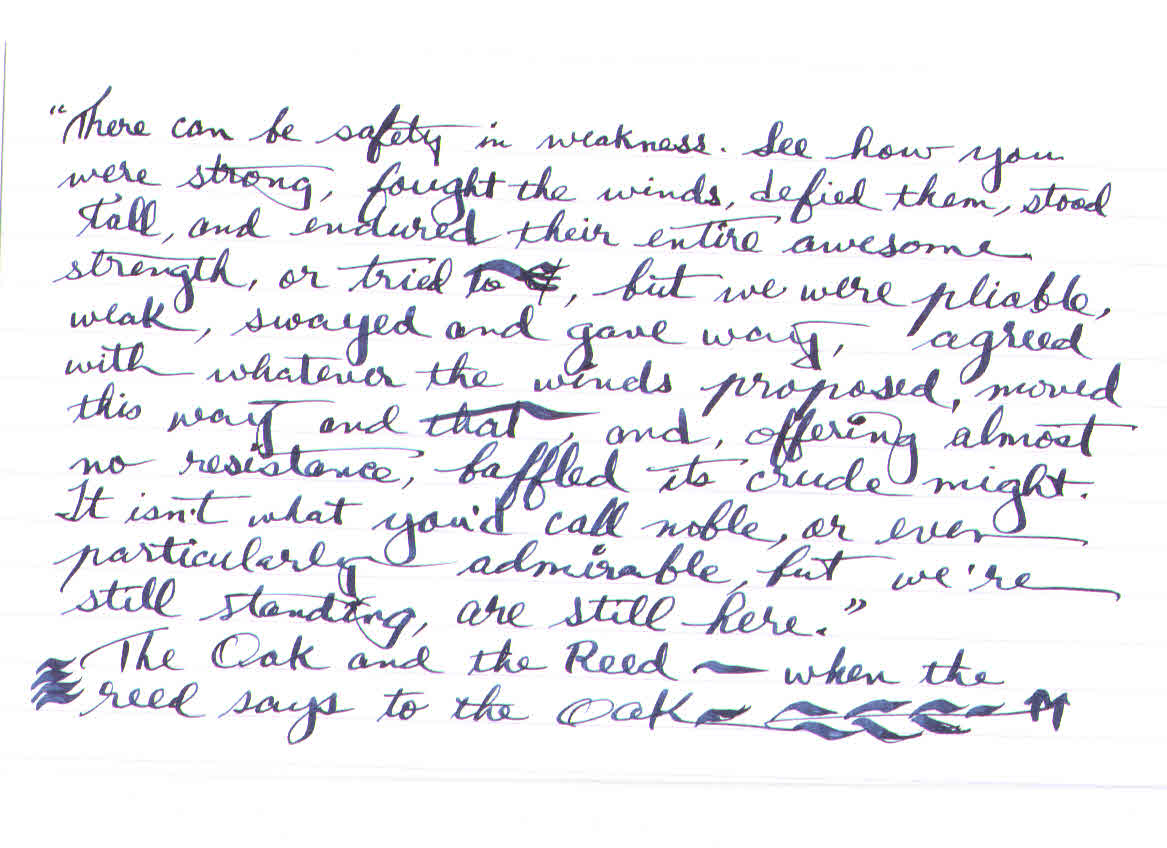 "There can be safety in weakness. See how you
were strong, fought the winds, defied them, stood
tall, and endured their entire awesome
strength, or tried to, but we were pliable,
weak, swayed and gave way, agreed
with whatever the winds proposed, moved
this way and that, and, offering almost
no resistance, baffled its crude might.
It isn't what you'd call noble, or even
particularly admirable, but we're
still standing, are still here."
The Oak and the Reed — when the
reed says to the Oak